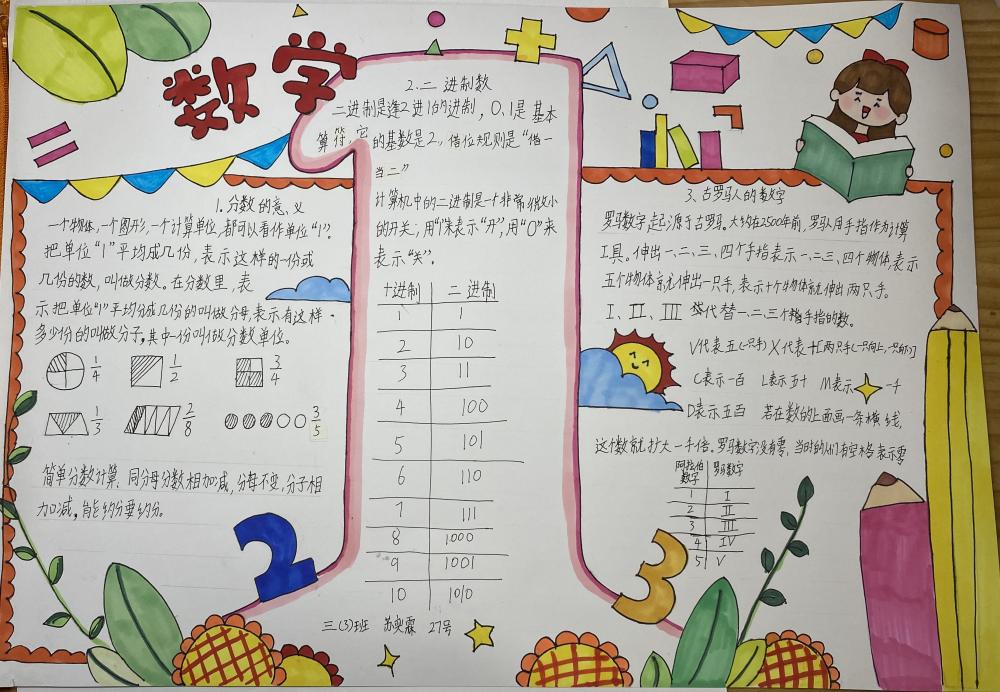 数学
1.分数的意义
一个物体,一个图形,一个计算单位,都可以看作单位“1”。
把单位“1”平均成几份,表示这样的一份或
几份的数,叫做分数。在分数里,表
示把单位“1”平均分成几份的叫做分母,表示有这样
多少份的叫做分子,其中一份叫做分数单位。
1/4 1/2 3/4
1/3 2/8 3/5
简单分数计算:同分母分数相加减,分母不变,分子相
加减,能约分要约分。
2.二进制数
二进制是逢2进1的进制,0、1是基本
算符,它的基数是2,借位规则是“借一
当二”
计算机中的二进制是个非常微小
的开关,用“1”来表示“开”,用“0”来
表示“关”.
十进制 二进制
1 1
2 10
3 11
4 100
5 101
6 110
7 111
8 1000
9 1001
10 1010
三(3)班 苏奕霖 27号
3、古罗马人的数字
罗马数字起源于古罗马。大约在2500年前,罗马人用手指作为计算
工具。伸出一、二、三、四个手指表示一、二、三、四个物体,表示
五个物体就伸出一只手,表示十个物体就伸出两只手。
I、II、III 代替一、二、三个手指的数。
V代表五(一只手)X代表十[两只手(一只向上,一只向下)]
C表示一百 L表示五十 M表示一千
D表示五百 若在数的上面画一条横线,
这个数就扩大一千倍。罗马数字没有零,当时的人们有空格表示零
阿拉伯数字 罗马数字
1 I
2 II
3 III
4 IV
5 V
2
3